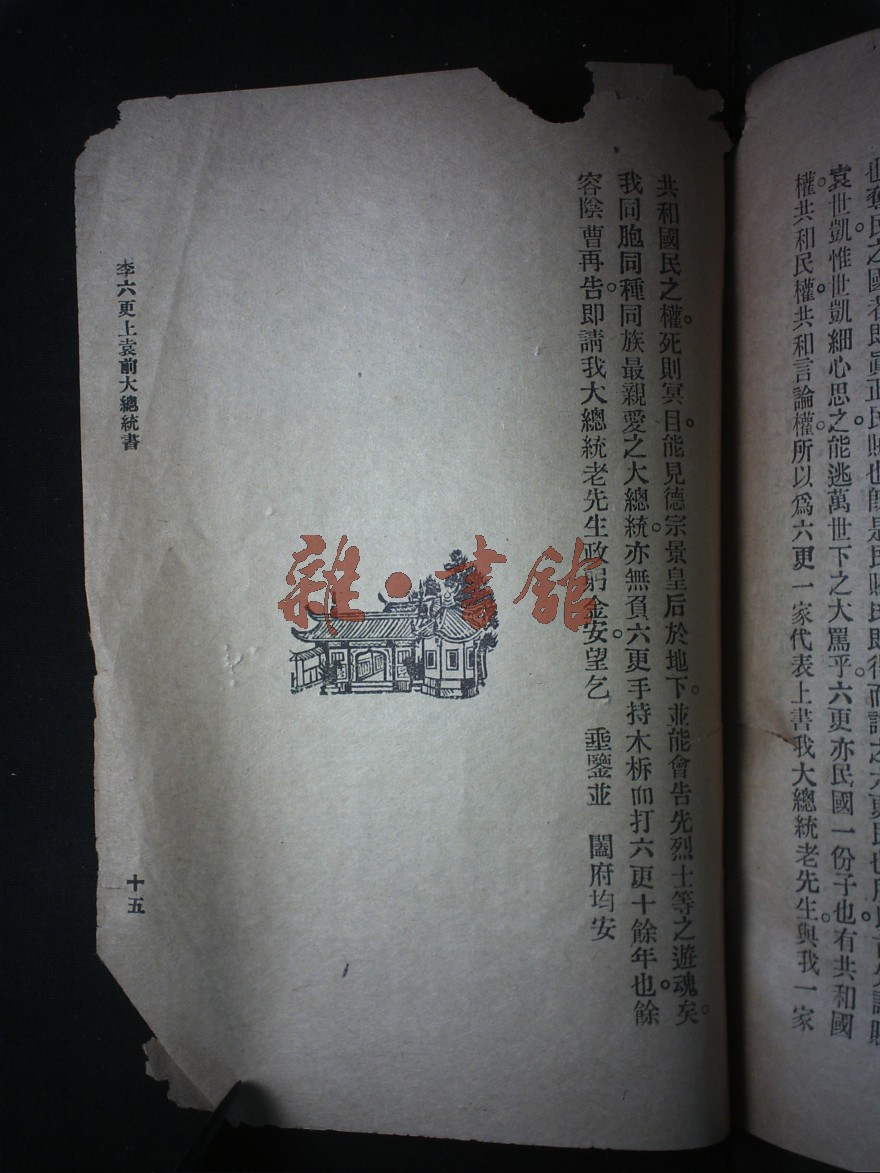 袁世凱惟世凱細心思之。能逃萬世下之大罵乎。六更亦民國一份子也。有共和國
權。共和民權。共和言論權。所以爲六更一家代表上書我大總統老先生。與我一家
共和國民之權。死則冥目。能見德宗景皇后於地下。並能會告先烈士等之遊魂矣。
我同胞同種同族最親愛之大總統。亦無負六更手持木柝而打六更十餘年也。餘
容陰曹再告。即請我大總統老先生政躬金安。望乞　垂鑒並　闔府均安
李六更上袁前大總統書
十五
雜·書館